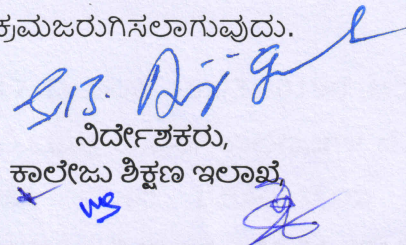 ಕ್ರಮಜರುಗಿಸಲಾಗುವುದು.
ನಿರ್ದೇಶಕರು,
ಕಾಲೇಜು ಶಿಕ್ಷಣ ಇಲಾಖೆ,